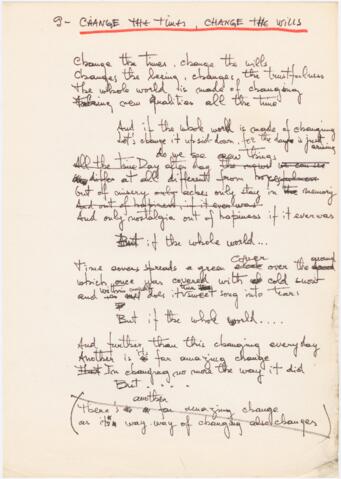 9- CHANGE THE TIMES, CHANGE THE WILLS
Change the times, change the wills
Changes the being, changes the trustfulness
The whole world is made of changing
Taking new qualities all the time
And if the whole world is made of changing
Let's change it upside down, for the day is just arising
do we see new things
All the time Day
differ at all different from hope
but of misery only aches only stay in the memory
And out of happiness if it ever was
And only nostalgia out of happiness if it ever was
But if the whole world...
cover ground
Time covers spreads a green over the
which once was covered with cold snow
and does it sweet song into tears
But if the whole world....
And further than this changing everyday
Another is far amazing change
I'm changing no more the way it did
But......
another
(There's a far amazing change
as it's way way of changing also changes)